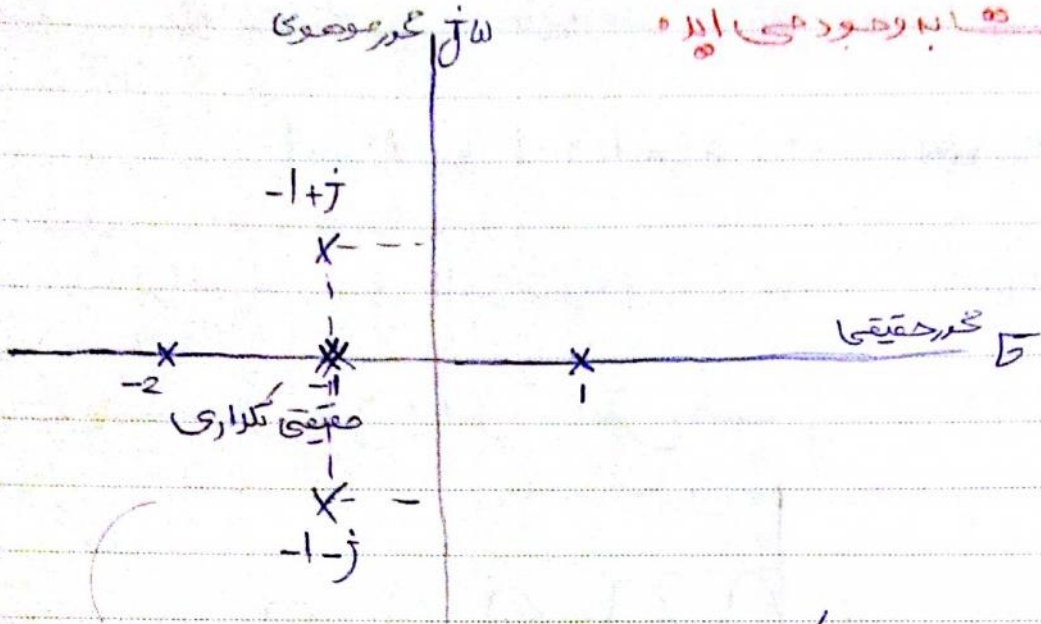 به وجود می آید.
محور موهومی jω
-1+j
محور حقیقی σ
-2 -1 1
حقیقی تکراری
-1-j